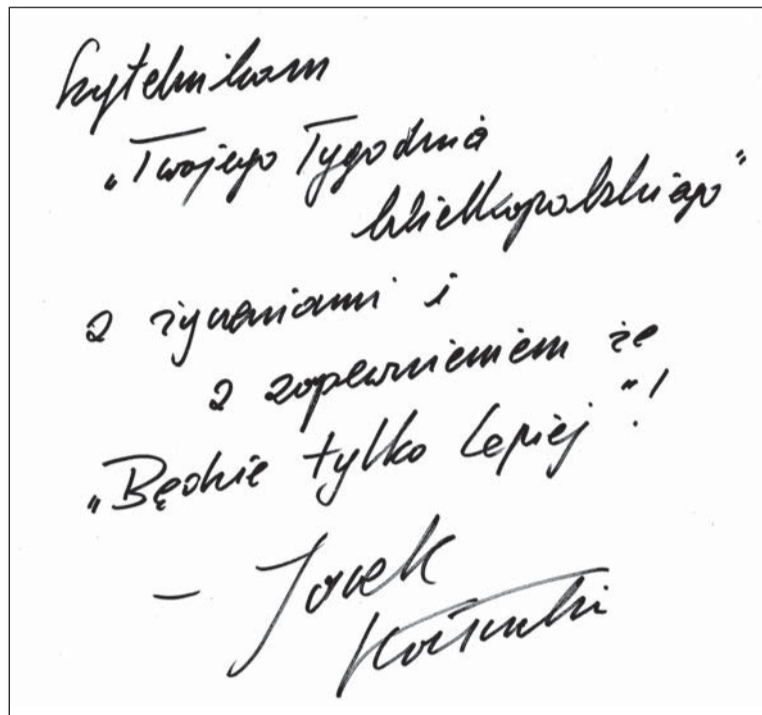 Czytelnikom
„Twojego Tygodnia
Wielkopolskiego"
z życzeniami i
z zapewnieniem że
„Będzie tylko lepiej"!
– Jacek